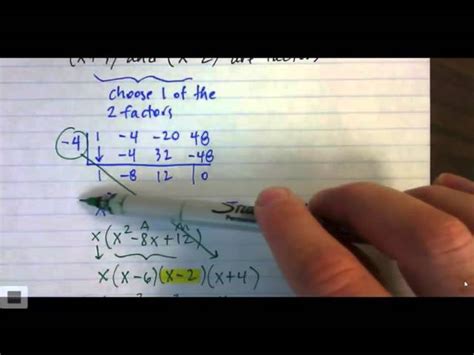 (x+4) and (x-2) are factors
choose 1 of the
2 factors
-4 | 1 -4 -20 48
↓ -4 32 -48
1 -8 12 | 0
x(x²-8x+12)
x(x-6)(x-2)(x+4)